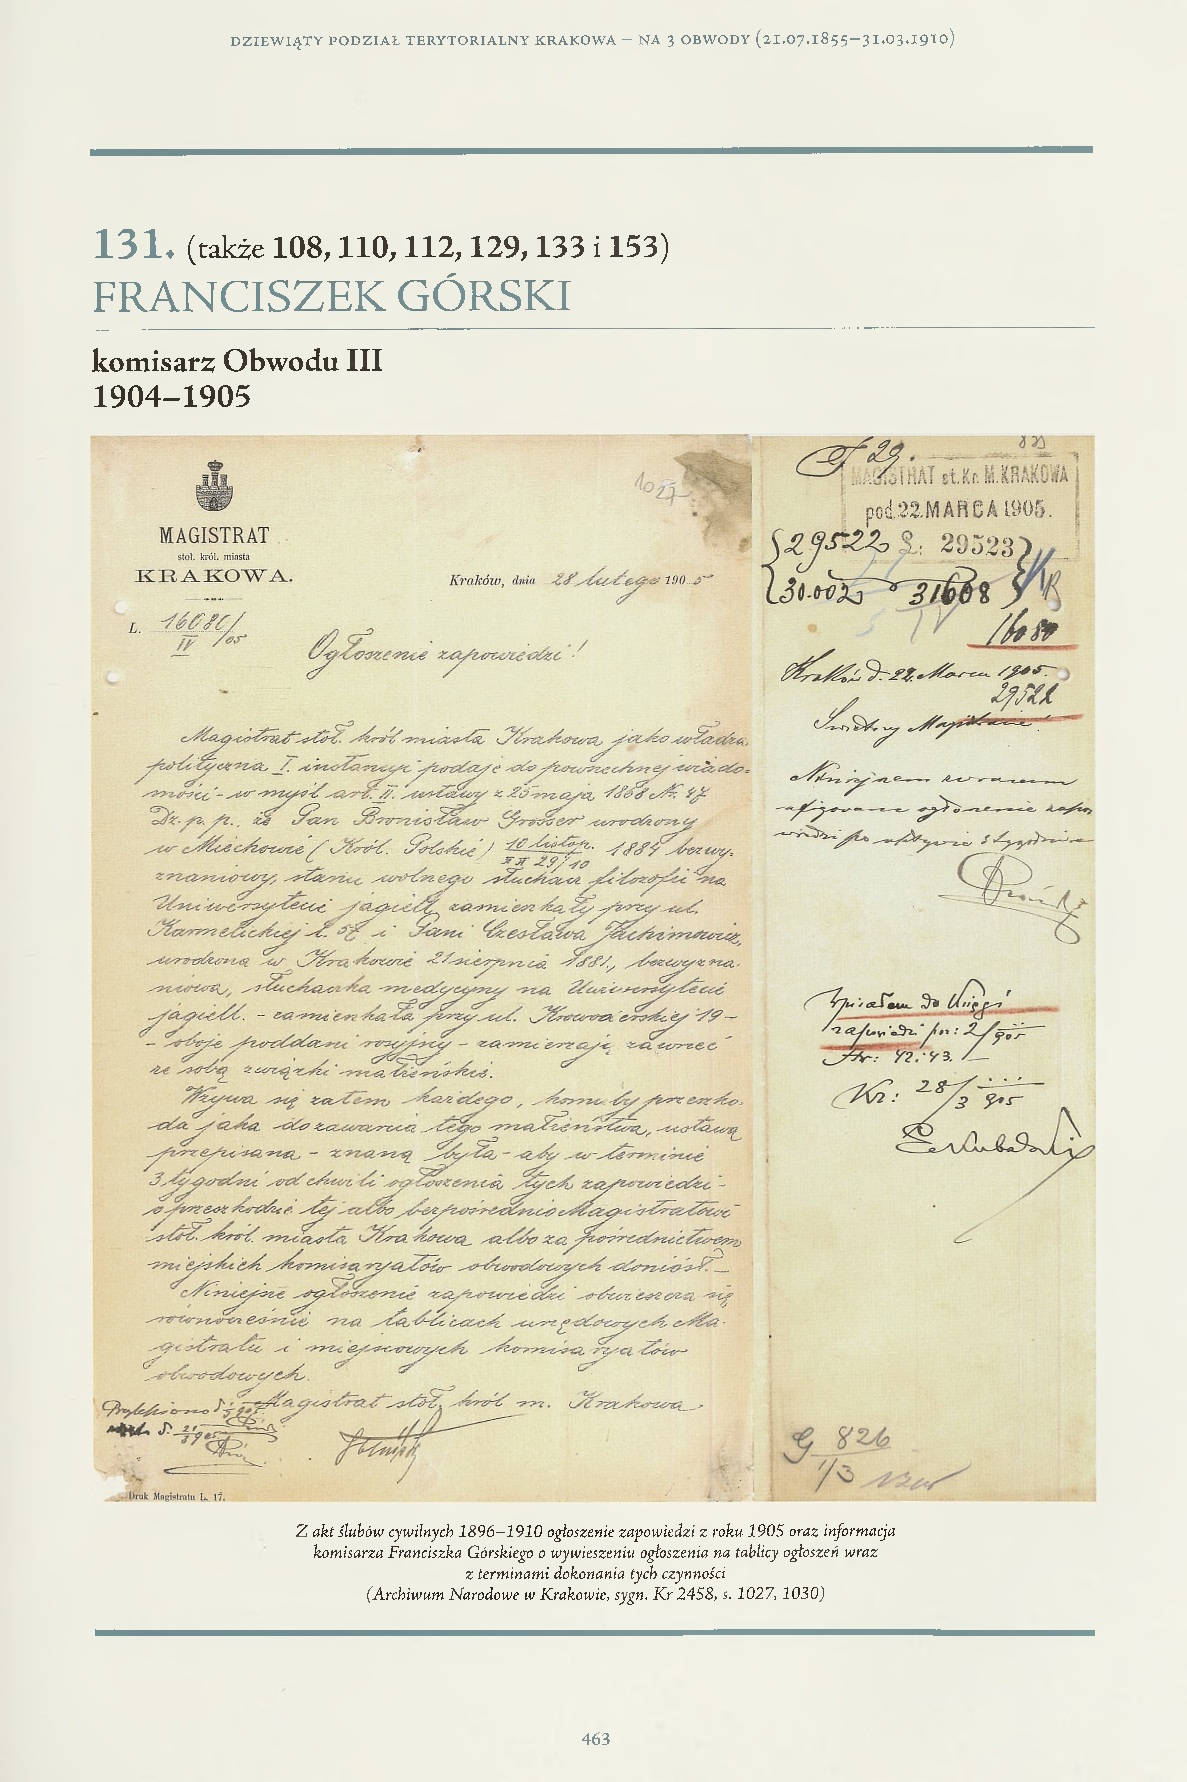 DZIEWIĄTY PODZIAŁ TERYTORIALNY KRAKOWA – NA 3 OBWODY (21.07.1855–31.03.1910)
131. (także 108, 110, 112, 129, 133 i 153)
FRANCISZEK GÓRSKI
komisarz Obwodu III
1904–1905
1027
MAGISTRAT
stoł. król. miasta
KRAKOWA.
Kraków, dnia 28 lutego 1905
L. 16080/IV/05
Ogłoszenie zapowiedzi!
Magistrat stoł. król miasta Krakowa jako władza
polityczna I. instancyi podaje do powszechnej wiado=
mości - w myśl art. II. ustawy z 25 maja 1868 Nr. 47
Dz. p. p., że Pan Bronisław Grosser urodzony
w Miechowie (Król. Polskie) 10 listop. 1884 bezwy-
znaniowy, stanu wolnego słuchacz filozofii na
Uniwersytecie jagiell. zamieszkały przy ul.
Karmelickiej l. 57 i Pani Czesława Jachimowicz,
urodzona w Krakowie 21 sierpnia 1881., bezwyzna-
niowa, słuchaczka medycyny na Uniwersytecie
jagiell. - zamieszkała przy ul. Krowoderskiej 19 -
- oboje poddani rosyjscy - zamierzają zawrzeć
ze sobą związki małżeńskie.
Wzywa się zatem każdego, komuby przeszko-
da jaka do zawarcia tego małżeństwa, ustawą
przepisana - znaną była - aby w terminie
3 tygodni od chwili ogłoszenia tych zapowiedzi -
o przeszkodzie tej albo bezpośrednio Magistratowi
stoł. król. miasta Krakowa albo za pośrednictwem
miejskich komisaryatów obwodowych doniósł. -
Niniejsze ogłoszenie zapowiedzi obwieszcza się
równocześnie na tablicach urzędowych Ma-
gistratu i miejscowych komisaryatów
obwodowych.
Magistrat stoł. król m. Krakowa
Druk Magistratu L. 17.
29.
MAGISTRAT st. Kr. M. KRAKOWA
pod. 22. MARCA 1905.
29522 L: 29523
30.002 31608
16080
Kraków d. 22. Marca 1905.
29522
Świetny Magistracie!
Niniejszem zwracam
afigowane ogłoszenie zapo
wiedzi po upływie 3 tygodni
Wpisałem do księgi
zapowiedzi poz: 2/905
Str: 42. 43.
Kr: 28/3 905
G 826
1/3
Z akt ślubów cywilnych 1896–1910 ogłoszenie zapowiedzi z roku 1905 oraz informacja
komisarza Franciszka Górskiego o wywieszeniu ogłoszenia na tablicy ogłoszeń wraz
z terminami dokonania tych czynności
(Archiwum Narodowe w Krakowie, sygn. Kr 2458, s. 1027, 1030)
463